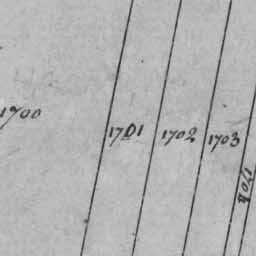 1700
1701
1702
1703